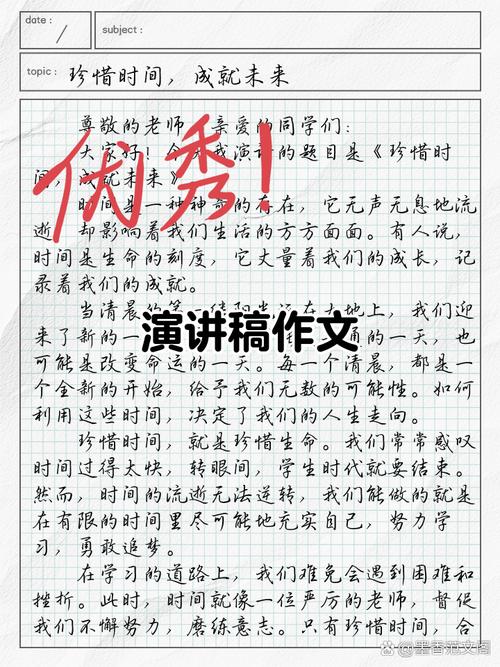 date:
subject:
topic: 珍惜时间，成就未来
尊敬的老师 亲爱的同学们：
大家好！今天我演讲的题目是《珍惜时
间，成就未来》
时间是一种神奇的存在，它无声无息地流
逝 却影响着我们生活的方方面面。有人说，
时间是生命的刻度，它丈量着我们的成长，记
录着我们的成就。
优秀！
当清晨的第一 在大地上，我们迎
来了新的一 通的一天，也
演讲稿作文
可能是改变命运的一天。每一个清晨，都是一
个全新的开始，给予我们无数的可能性。如何
利用这些时间，决定了我们的人生走向。
珍惜时间，就是珍惜生命。我们常常感叹
时间过得太快，转眼间，学生时代就要结束。
然而，时间的流逝无法逆转，我们能做的就是
在有限的时间里尽可能地充实自己，努力学
习，勇敢追梦。
在学习的道路上，我们难免会遇到困难和
挫折。此时，时间就像一位严厉的老师，督促
我们不懈努力，磨练意志。只有珍惜时间，合
墨香范文阁